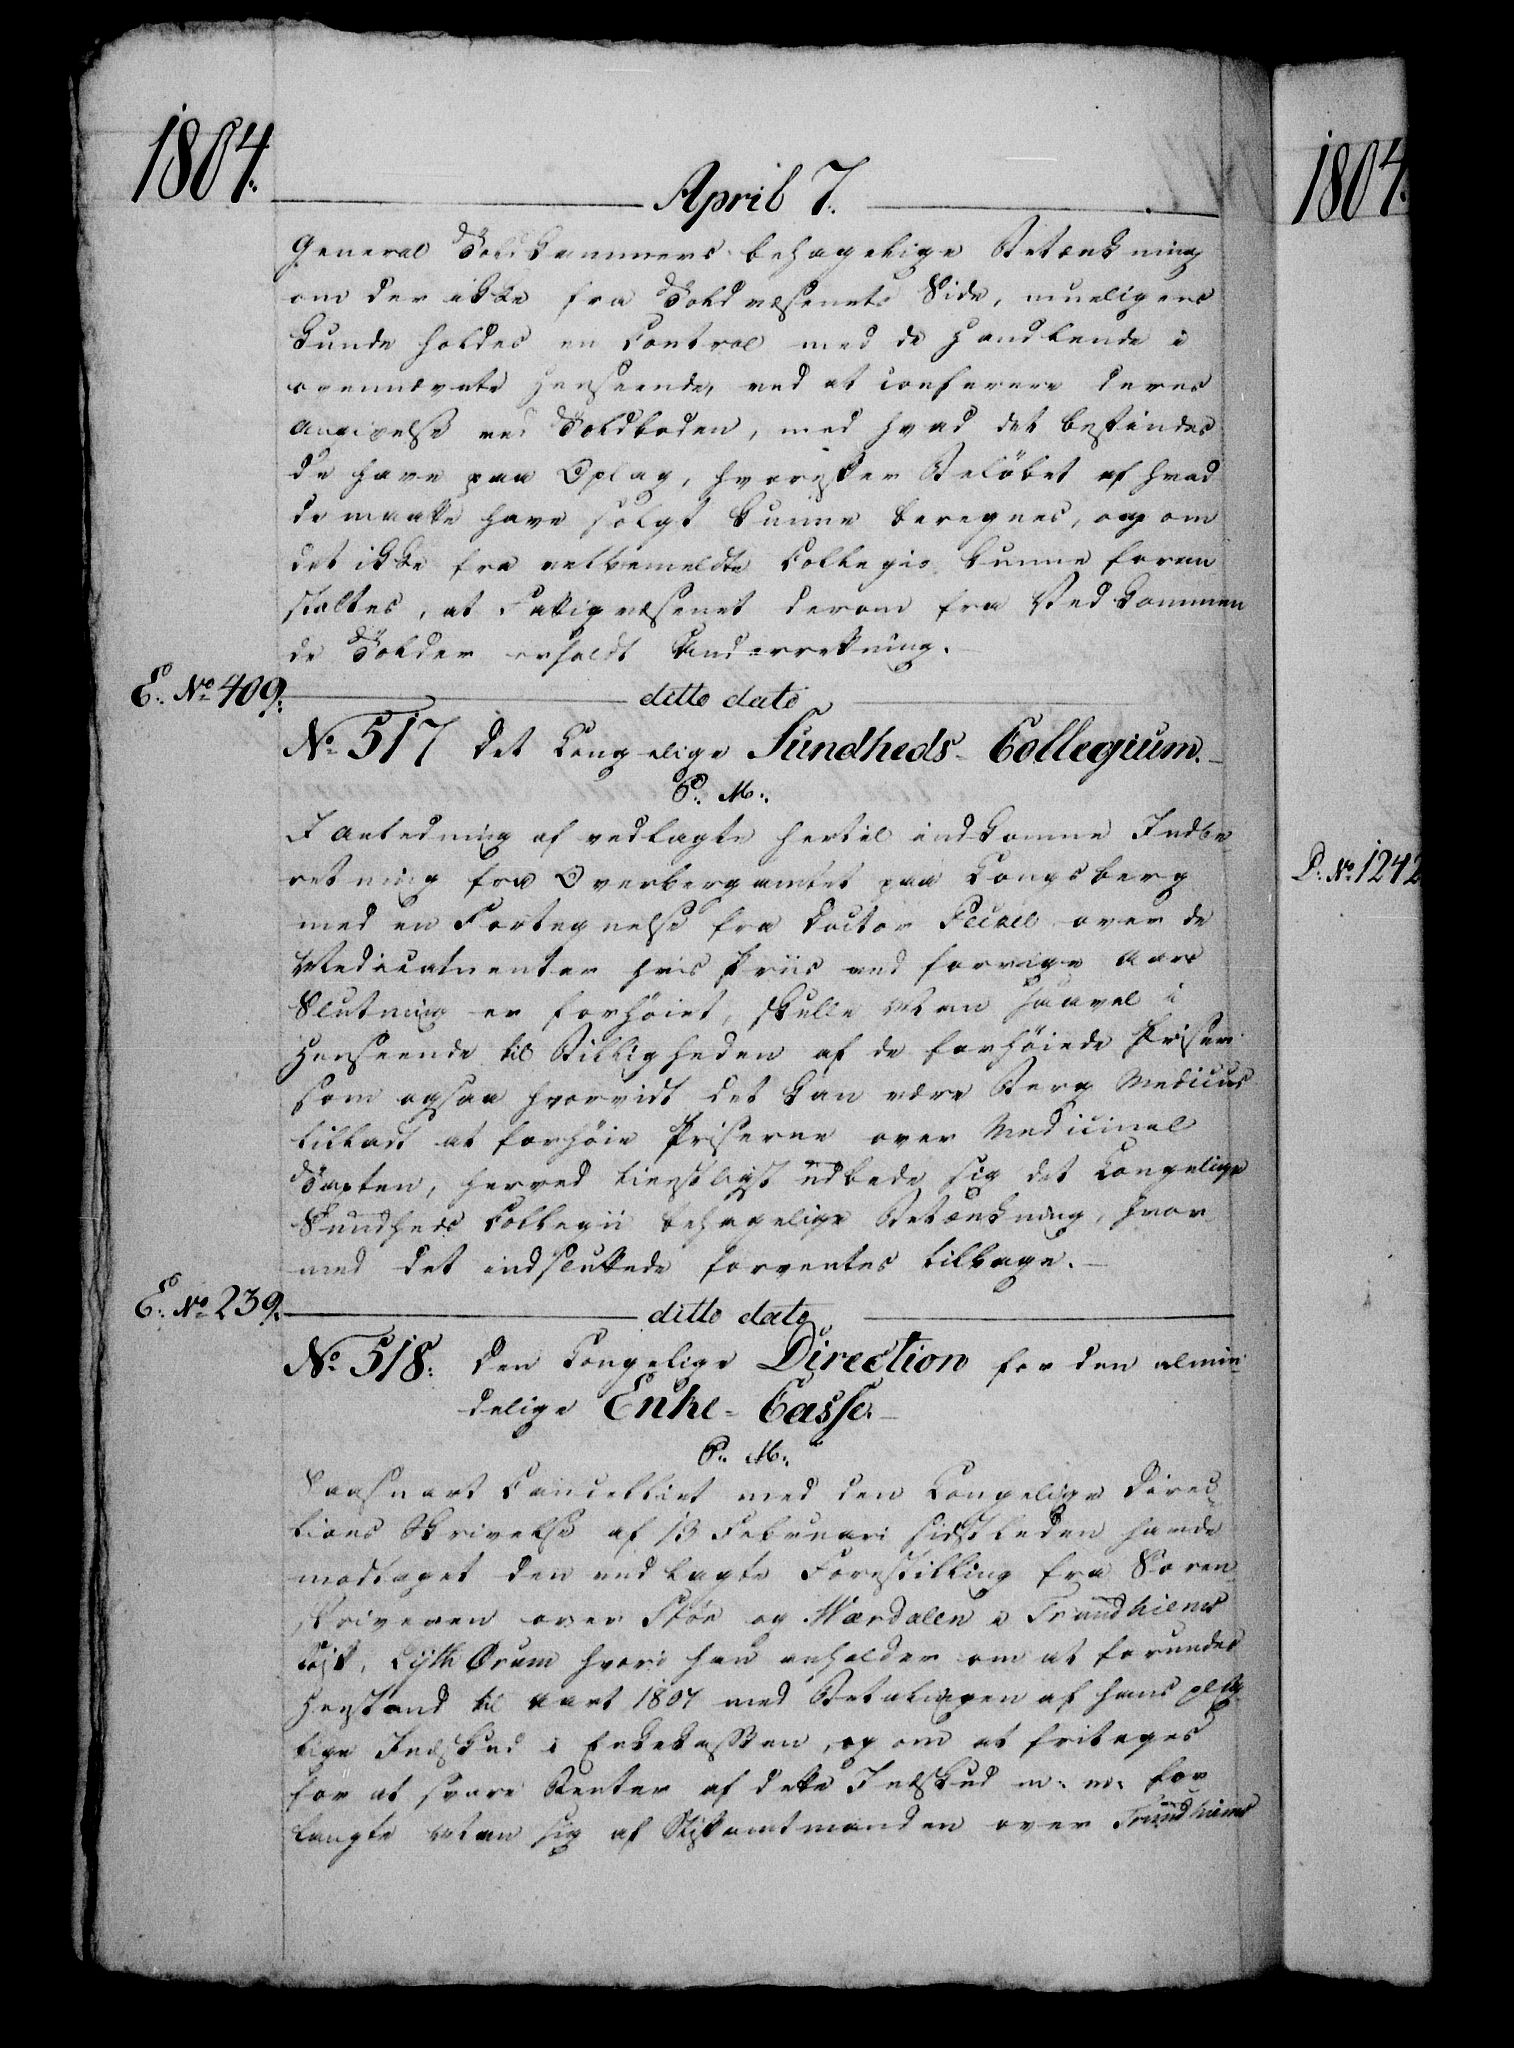 1804.
April 7.
General Toldkammers behagelige Betænkning
om der ikke fra Toldvæsenets Side, mueligens
kunde holdes en Control med de Handlende i
ovennævnte Henseende, ved at conferere deres
Angivelse ved Toldboden, med hvad det befindes
de have paa Oplag, hvorefter Beløbet af hvad
de maatte have solgt kunne beregnes, og om
det ikke fra velbemeldte Collegio kunne foran
staltes, at Fattigvæsenet derom fra Vedkommen
de Tolder erholdt Underretning.
E. No 409.
ditto dato
No 517 Det Kongelige Sundheds-Collegium.
P. M.
I Anledning af vedlagte hertil indkomne Indbe
retning fra Overbergamtet paa Kongsberg
med en Fortegnelse fra Doctor over de
Medicamenter hvis Priis ved forrige Aars
Slutning er forhøiet, skulle Man saavel i
Henseende til Billigheden af de forhøiede Priser
som ogsaa hvorvidt det kan være Berg Medicus
tilladt at forhøie Priserne over Medicinal
Taxten, herved tienstligst udbede sig det Kongelige
Sundheds Collegii behagelige Betænkning, hvor
med det indsluttede forventes tilbage.
E. No 239.
ditto dato
No 518. Den Kongelige Direction for den almin
delige Enke-Casse.
P. M.
Saasnart Cancelliet med den Kongelige Direc
tions Skrivelse af 13 Februari sidstleden havde
modtaget den vedlagte Forestilling fra Soren
skriveren over Stør og Værdalen i Trundhiems
Stift, Lyth Ørum hvori han anholder om at forundes
Henstand til Aaret 1807 med Betalingen af hans pligt
tige Indskud i Enkekassen, og om at fritages
for at svare Renter af dette Indskud m. m. for
langte Man sig af Stiftamtmanden over Trundhiems
1804.
P. No 1242